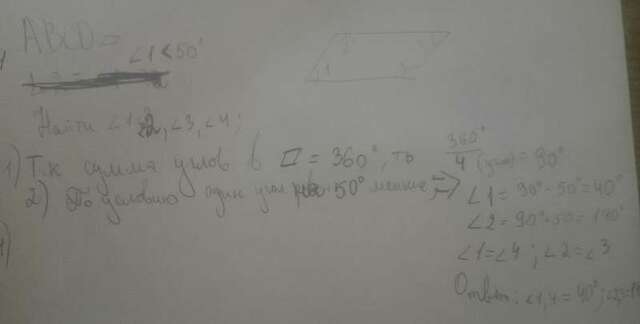 ABCD =
∠1 < 50°
Найти ∠1, 2, ∠3, ∠4;
1
1) Т.к сумма углов в ▱ = 360°, то 360°/4 (угла) = 90°
2) По условию один угол 50° меньше =>
∠1 = 90° - 50° = 40°
∠2 = 90° + 50 = 140°
∠1 = ∠4 ; ∠2 = ∠3
Ответ: ∠1,4 = 40°;